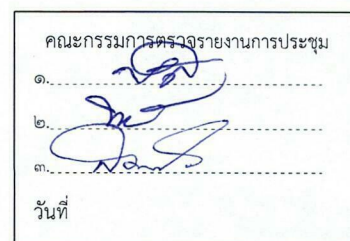 คณะกรรมการตรวจรายงานการประชุม
๑.
๒.
๓.
วันที่